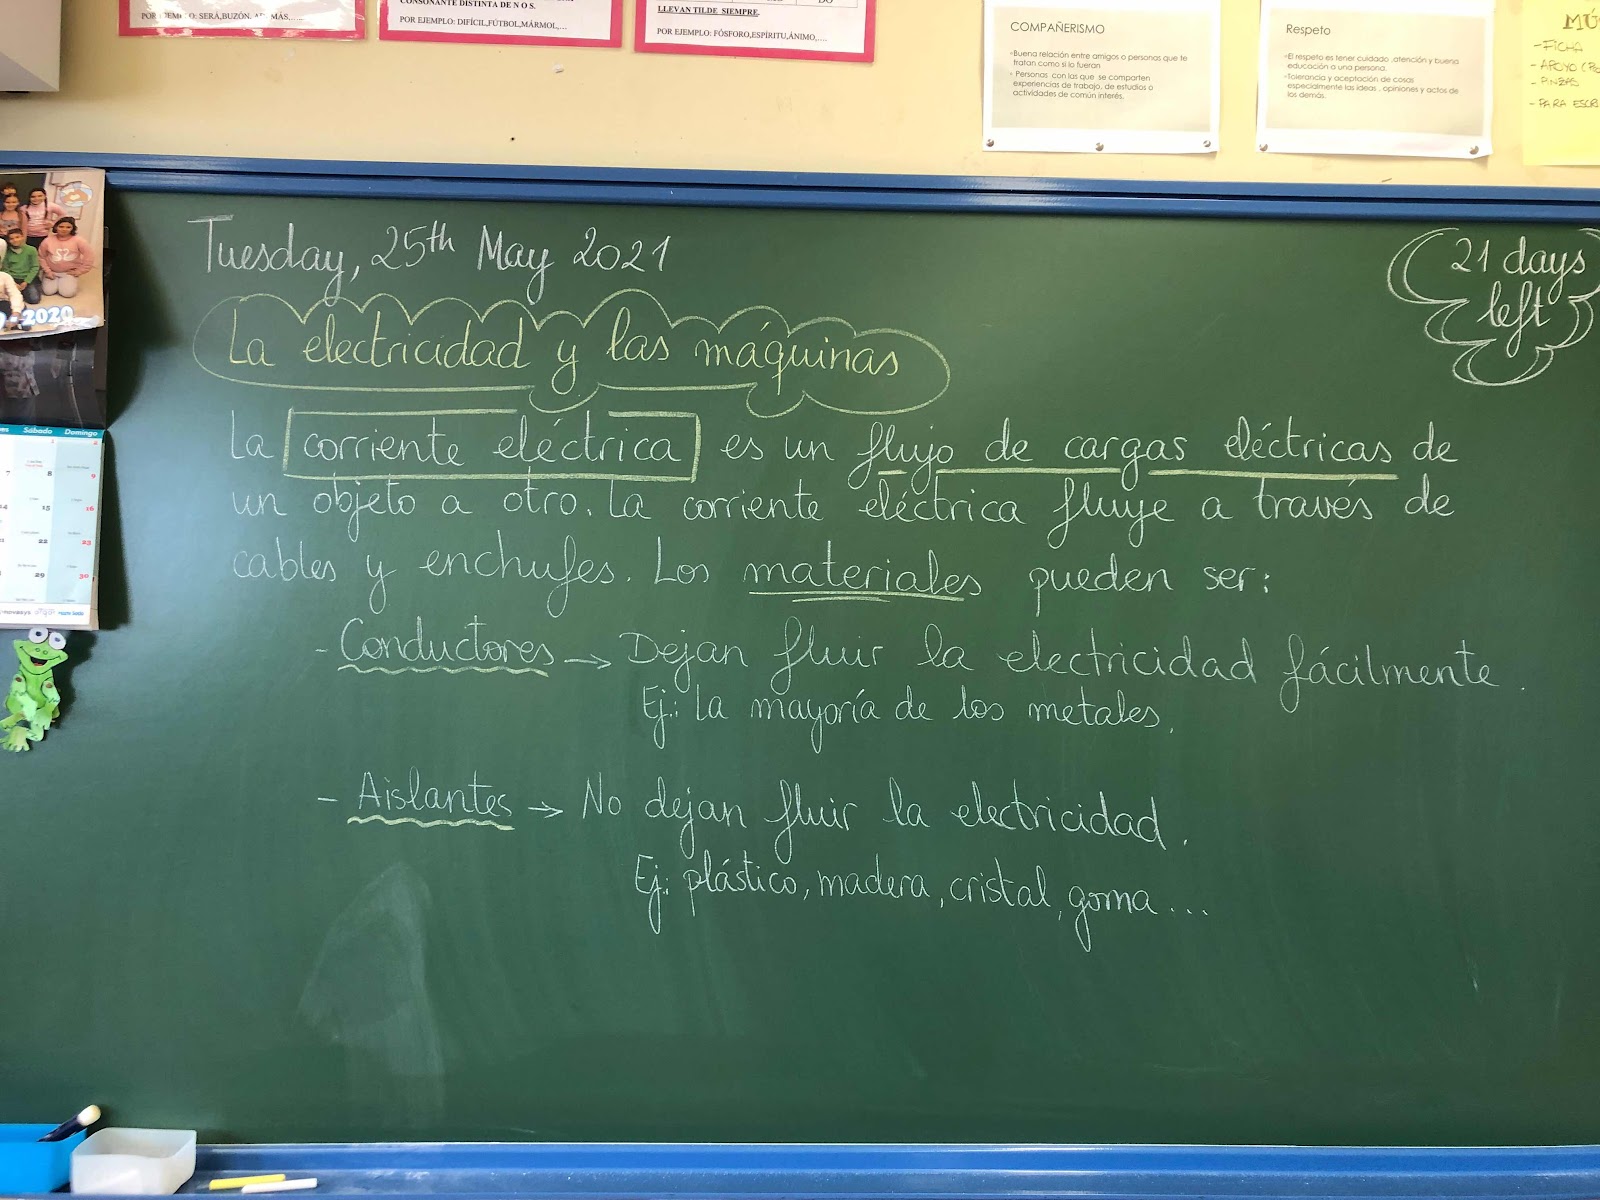 POR EJEMPLO: SERÁ,BUZÓN, ADEMÁS,.....
CONSONANTE DISTINTA DE N O S.
POR EJEMPLO: DIFÍCIL,FÚTBOL,MÁRMOL,...
LLEVAN TILDE SIEMPRE.
POR EJEMPLO: FÓSFORO,ESPÍRITU,ÁNIMO,....
COMPAÑERISMO
◦Buena relación entre amigos o personas que te
tratan como si lo fueran
◦ Personas con las que se comparten
experiencias de trabajo, de estudios o
actividades de común interés.
Respeto
◦El respeto es tener cuidado ,atención y buena
educación a una persona.
◦Tolerancia y aceptación de cosas
especialmente las ideas , opiniones y actos de
los demás.
-FICHA
- APOYO
- PINZAS
- PARA
2020
Sábado Domingo
Tuesday, 25th May 2021
21 days
left
La electricidad y las máquinas
La corriente eléctrica es un flujo de cargas eléctricas de
un objeto a otro. La corriente eléctrica fluye a través de
cables y enchufes. Los materiales pueden ser:
- Conductores → Dejan fluir la electricidad fácilmente.
Ej.: La mayoría de los metales.
- Aislantes → No dejan fluir la electricidad.
Ej.: plástico, madera, cristal, goma...